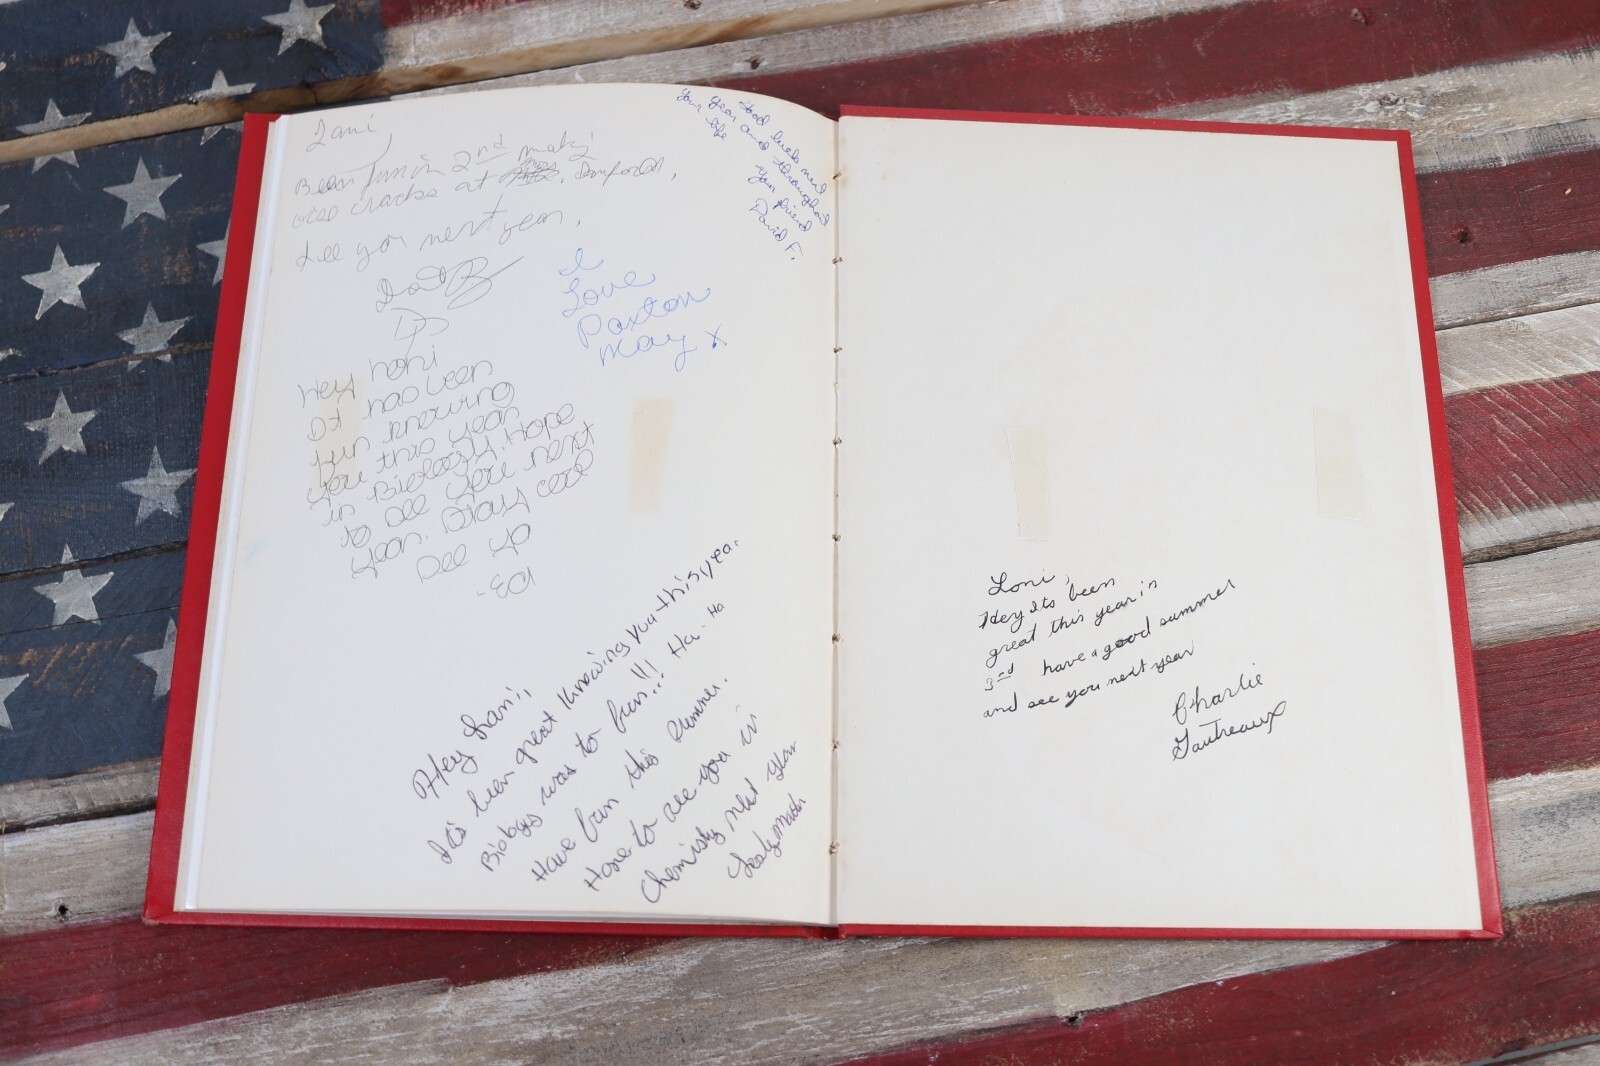 Lani,
Been fun in 2nd makin'
wise cracks at Sanford,
See you next year,
Hey Loni
It has been
fun knowing
you this year
in Biology. Hope
to see you next
year. Stay cool
See ya
Good luck next
year and throughout
your life
Your friend
David F.
I
Love
Paxton
May X
Hey Lani,
It's been great knowing you this yea.
Biology was to fun!!! Ha-Ha
Have fun this Summer.
Hope to see you in
Chemistry next year
Loni,
Hey Its been
great this year in
3rd have a good summer
and see you next year
Charlie
Gautreaux